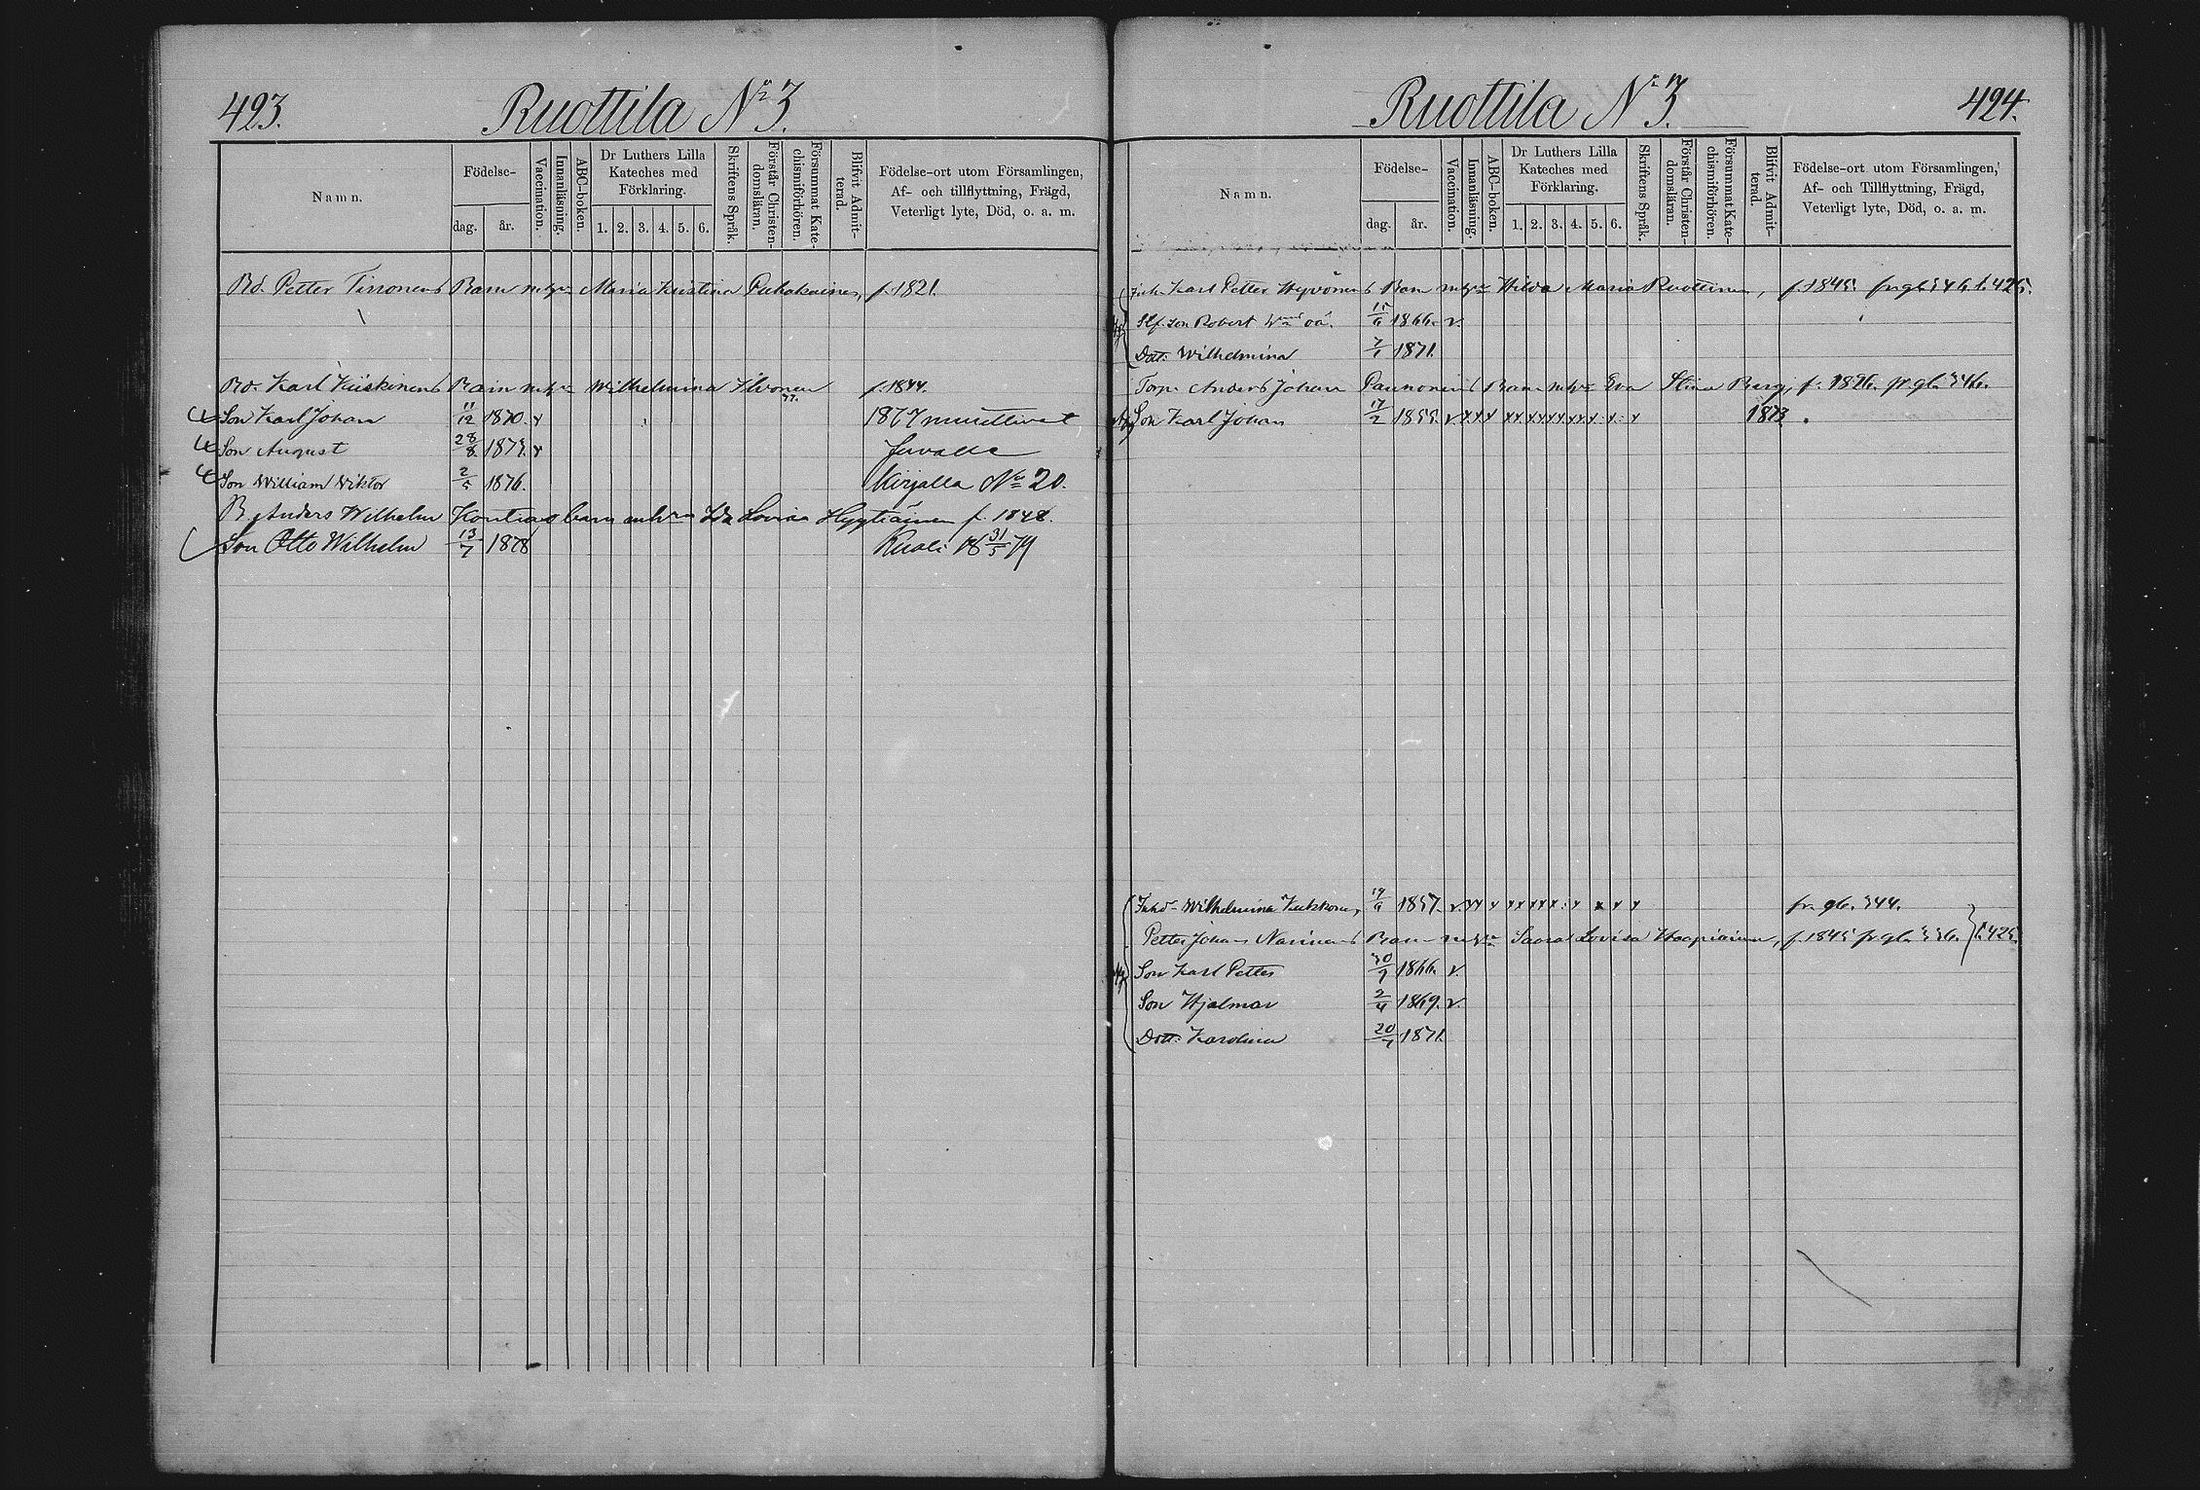 423.
Ruottila No 3.
Namn.
Födelse-
dag.
år.
Vaccination.
Innanläsning.
ABC-boken.
Dr Luthers Lilla
Kateches med
Förklaring.
1. 2. 3. 4. 5. 6.
Skriftens Språk.
Förstår Christen-
domsläran.
Försummat Kate-
chismiförhören.
Blifvit Admit-
terad.
Födelse-ort utom Församlingen,
Af- och tillflyttning, Frägd,
Veterligt lyte, Död, o. a. m.
Bd. Petter Tirronens Barn m. Maria Kristina Puhakainen, f. 1821.
Bd. Karl Kiiskinens Barn m. Wilhelmina Ilvonen f. 1844.
Son Karl Johan 11/12 1870. v 1877 muuttivat
Son August 28/8 1873. v
Son William Viktor 2/5 1876. Kirjalla No 20.
Anders Wilhelm barn Ida Lovisa f. 1848.
Son Otto Wilhelm 13/7 1878 Kuoli 18 31/5 79
424.
Ruottila No 3.
Namn.
Födelse-
dag.
år.
Vaccination.
Innanläsning.
ABC-boken.
Dr Luthers Lilla
Kateches med
Förklaring.
1. 2. 3. 4. 5. 6.
Skriftens Språk.
Förstår Christen-
domsläran.
Försummat Kate-
chismiförhören.
Blifvit Admit-
terad.
Födelse-ort utom Församlingen,
Af- och Tillflyttning, Frägd,
Veterligt lyte, Död, o. a. m.
Karl Petter Hyvönens Barn m. Hilda Maria Ruottinen, f. 1845. fr. gb. 346. 425.
Son Robert 15/6 1866. v.
Dott. Wilhelmina 7/1 1871.
Torp. Anders Johan Paunonens Barn m. Eva Stina Berg, f. 1826. fr. gb. 346.
Son Karl Johan 17/2 1855. v. x x x x x x x x x x x x x x 1873
Wilhelmina Kukkonen, 19/6 1857. v. x x x x x x x x x x x x fr. gb. 344.
Petter Johan Narinens Barn m. Saara Lovisa Haapiainen, f. 1845 fr. gb. 336. 425.
Son Karl Petter 30/9 1866. v.
Son Hjalmar 2/4 1869. v.
Dott. Karolina 20/7 1871.